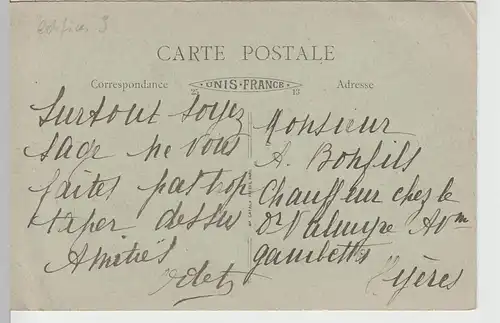 Edifices 3
CARTE POSTALE
Correspondance
UNIS-FRANCE
Adresse
Surtout soyez
sage ne vous
faites pas trop
taper dessus
Amitiés
Odet
Monsieur
A. Bonfils
Chauffeur chez le
Dr Valmyre Avm
gambetta
Hyères